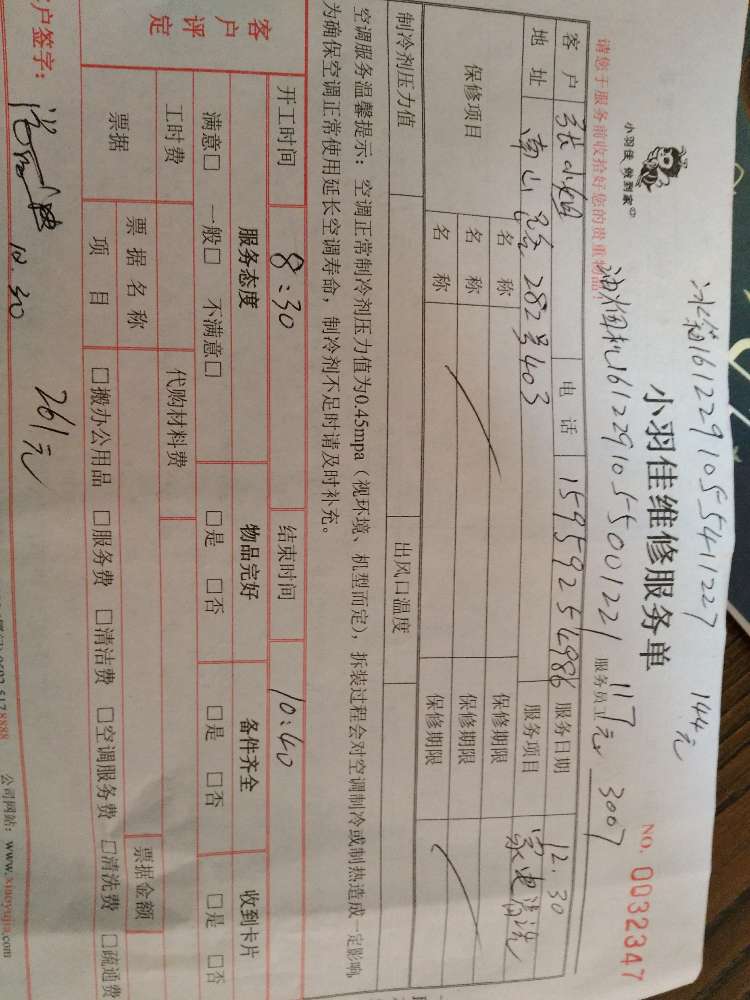 冰箱161229105541227 144元
小羽佳 做到家
小羽佳维修服务单
NO. 0032347
请您于服务前收拾好您的贵重物品
油烟机1612291055001221 117元
服务员工 3007
客户 张小姐 电话 15959254986 服务日期 12.30
地址 南山路282号403 服务项目 家电清洗
保修项目 名称 保修期限
名称 保修期限
名称 保修期限
制冷剂压力值 出风口温度
空调服务温馨提示：空调正常制冷剂压力值为0.45mpa（视环境、机型而定），拆装过程会对空调制冷或制热造成一定影响，
为确保空调正常使用延长空调寿命，制冷剂不足时请及时补充。
开工时间 8:30 结束时间 10:40
客户评定 服务态度 物品完好 备件齐全 收到卡片
满意□ 一般□ 不满意□ □是 □否 □是 □否 □是 □否
工时费 代购材料费
票据 票据名称 票据金额
项目 □搬办公用品 □服务费 □清洁费 □空调服务费 □清洗费 □疏通费
261元
户签字： 10.30
8888 公司网站：www.xiaoyujia.com